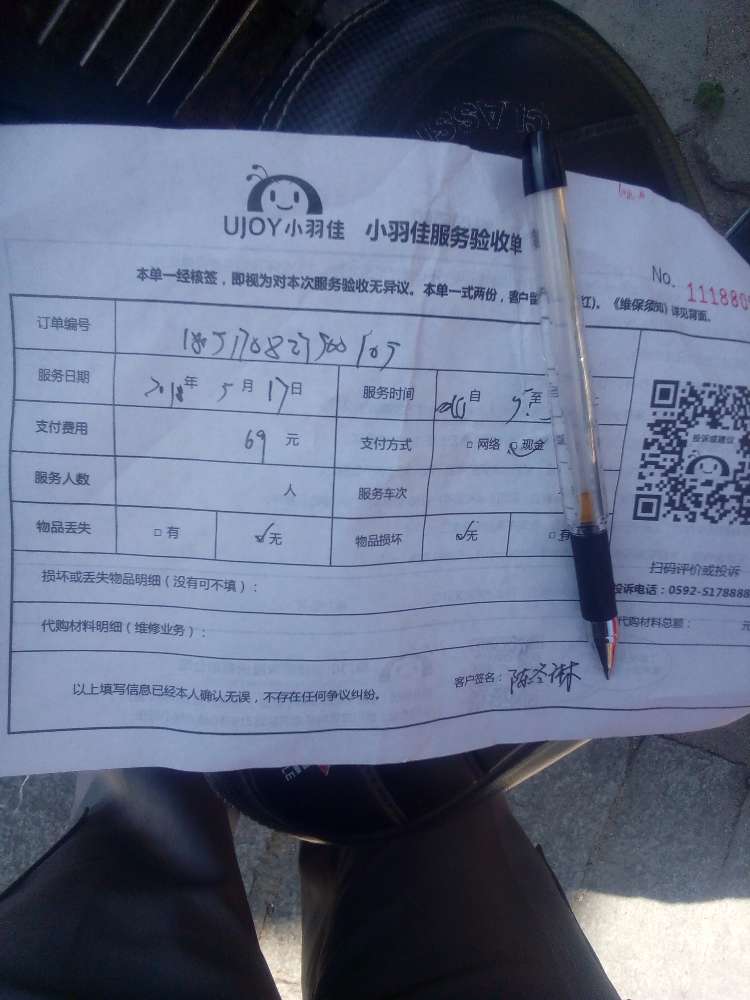 UJOY小羽佳 小羽佳服务验收单
No. 111880
本单一经核签，即视为对本次服务验收无异议。本单一式两份，客户 《维保须知》详见背面。
订单编号
服务日期 2018年5月17日 服务时间 自 至
支付费用 69元 支付方式 □网络 □现金
投诉或建议
服务人数 人 服务车次
物品丢失 □有 ☑无 物品损坏 ☑无 □有
扫码评价或投诉
损坏或丢失物品明细（没有可不填）：
投诉电话：0592-5178888
代购材料明细（维修业务）： 代购材料总额： 元
以上填写信息已经本人确认无误，不存在任何争议纠纷。 客户签名：